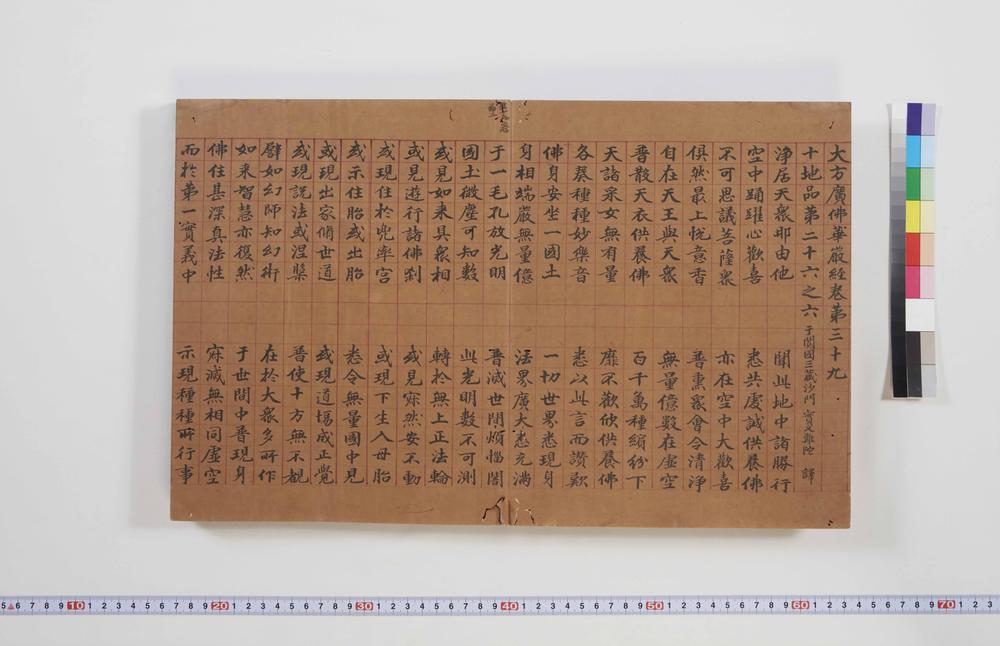 大方廣佛華嚴經卷第三十九
十地品第二十六之六 于闐國三藏沙門 實叉難陀 譯
淨居天衆那由他 聞此地中諸勝行
空中踊躍心歡喜 悉共虔誠供養佛
不可思議菩薩衆 亦在空中大歡喜
俱然最上悅意香 普熏衆會令清淨
自在天王與天衆 無量億數在虛空
普散天衣供養佛 百千萬種繽紛下
天諸采女無有量 靡不歡欣供養佛
各奏種種妙樂音 悉以此言而讚歎
佛身安坐一國土 一切世界悉現身
身相端嚴無量億 法界廣大悉充滿
于一毛孔放光明 普滅世間煩惱闇
國土微塵可知數 此光明數不可測
或見如來具衆相 轉於無上正法輪
或見遊行諸佛刹 或見寂然安不動
或現住於兜率宮 或現下生入母胎
或示住胎或出胎 悉令無量國中見
或現出家脩世道 或現道場成正覺
或現説法或涅槃 普使十方無不覩
譬如幻師知幻術 在於大衆多所作
如來智慧亦復然 于世間中普現身
佛住甚深真法性 寂滅無相同虛空
而於第一實義中 示現種種所行事
5 6 7 8 9 10 1 2 3 4 5 6 7 8 9 20 1 2 3 4 5 6 7 8 9 30 1 2 3 4 5 6 7 8 9 40 1 2 3 4 5 6 7 8 9 50 1 2 3 4 5 6 7 8 9 60 1 2 3 4 5 6 7 8 9 70 1 2 3